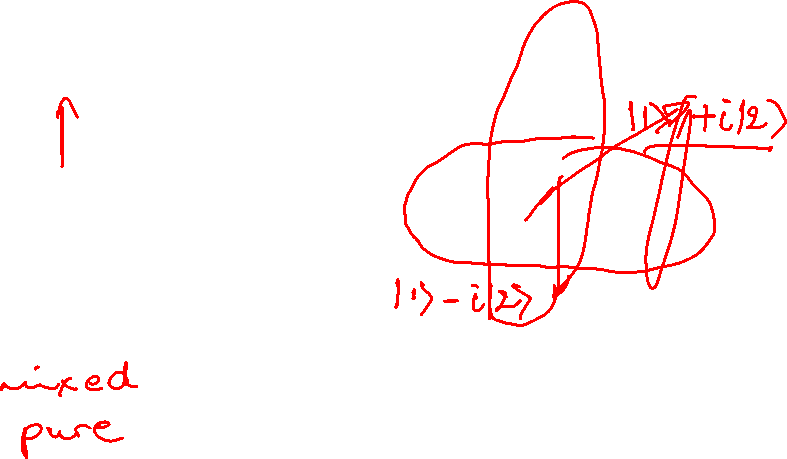 |1⟩ + i|2⟩
|1⟩ - i|2⟩
mixed
pure